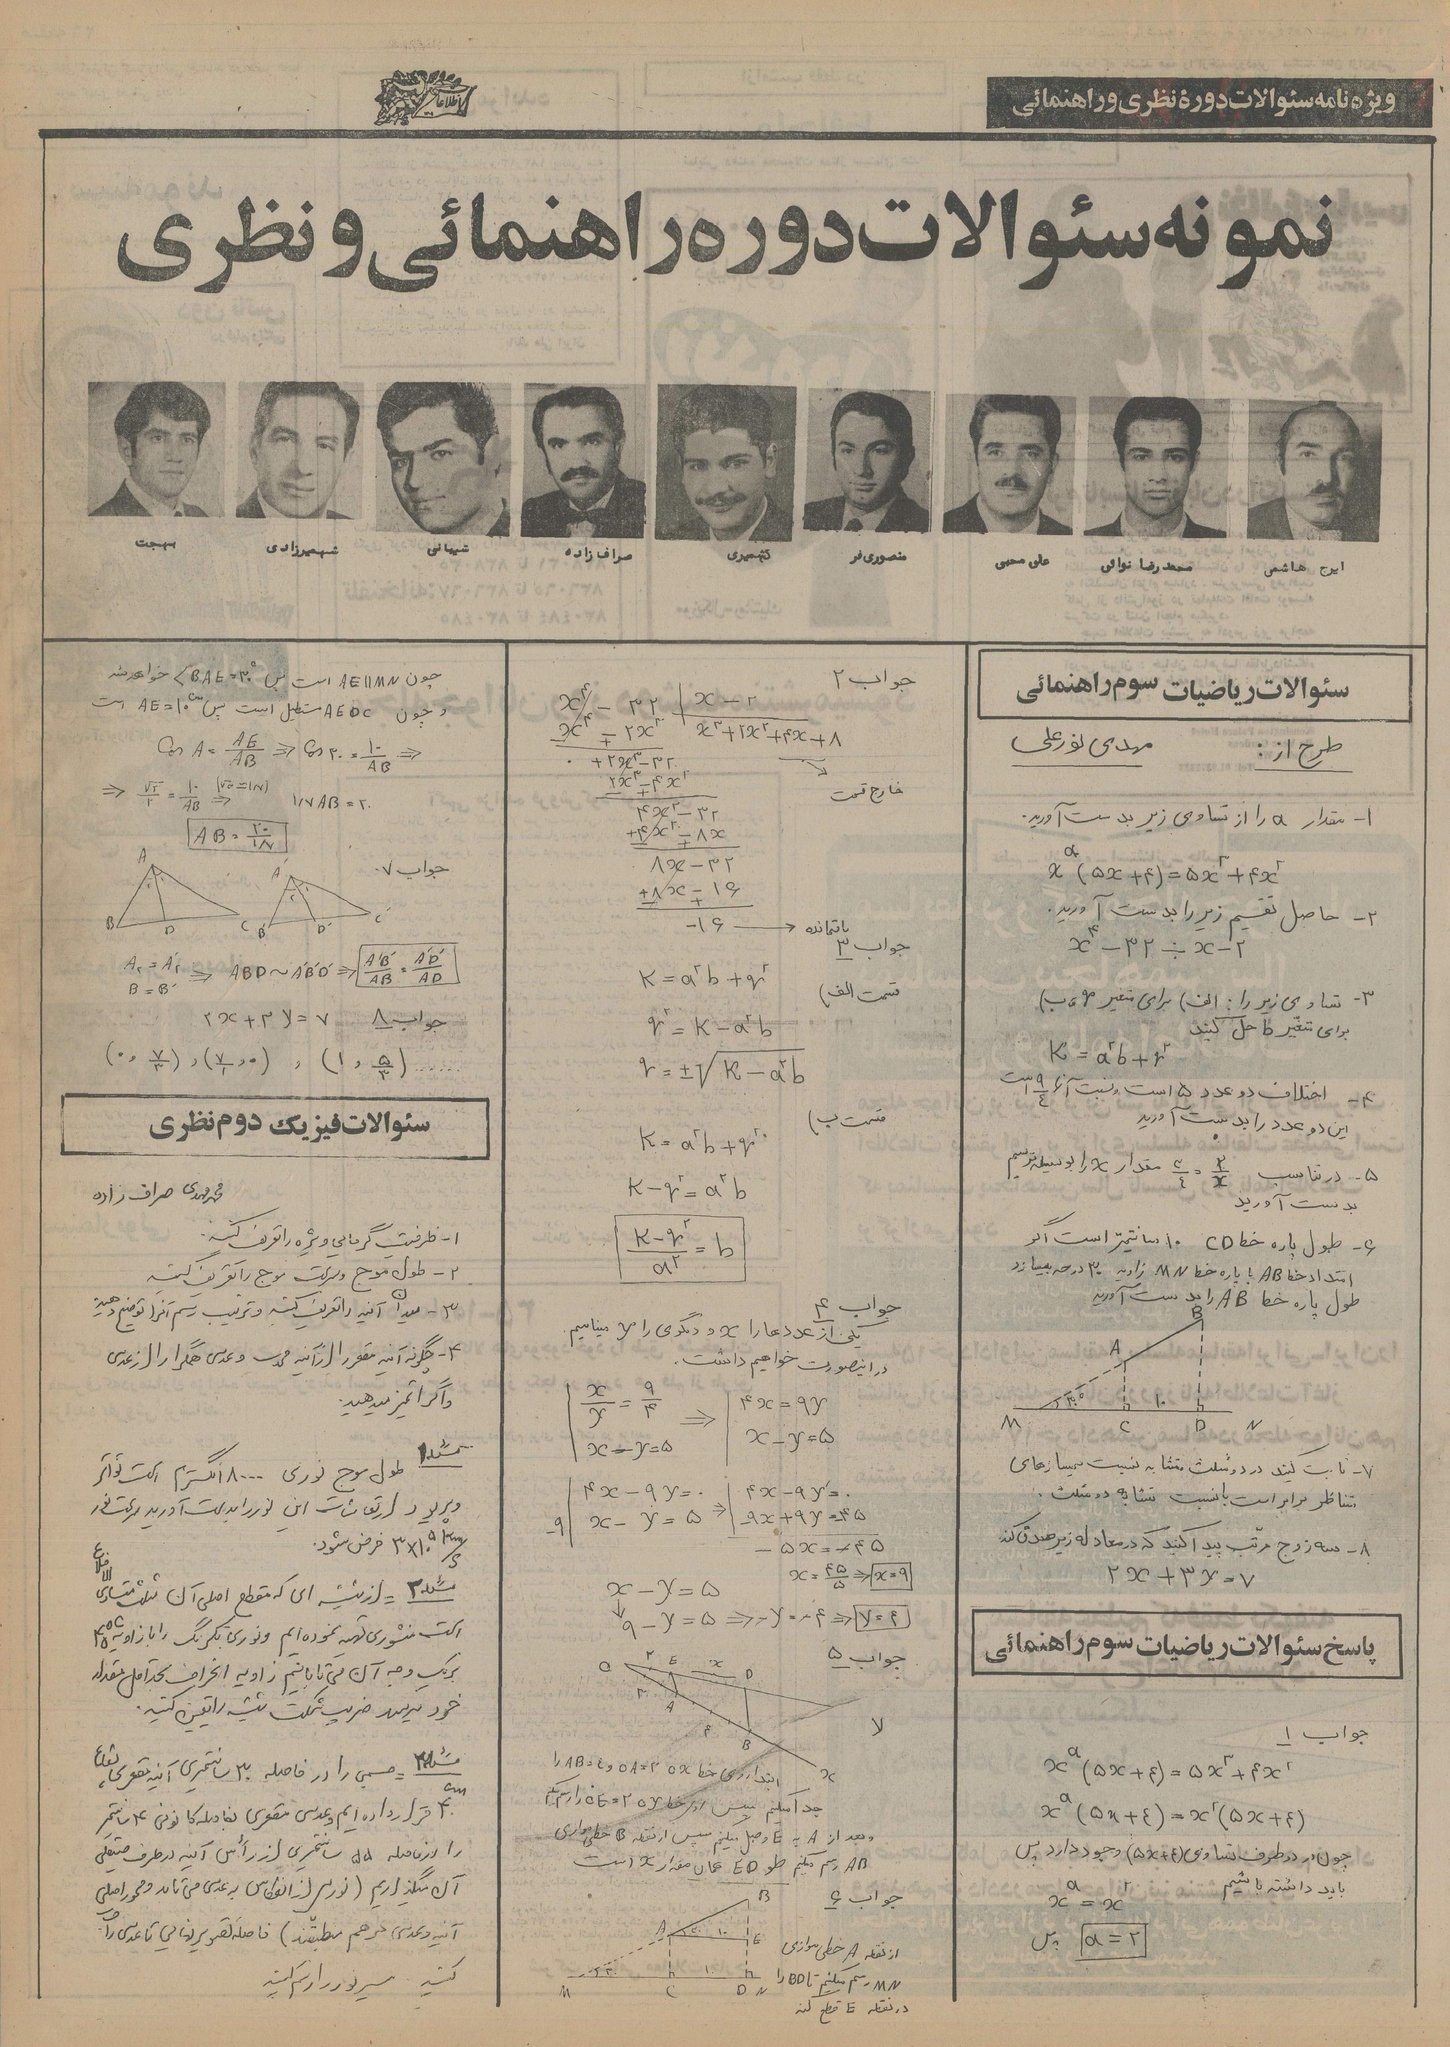 ویژه نامه سئوالات دورهٔ نظری و راهنمائی
اطلاعات
نمونه سئوالات دوره راهنمائی و نظری
ایرج هاشمی
محمد رضا نوائی
علی محبی
منصوری فر
کشمیری
صراف زاده
شیبانی
شهمیرزادی
بهجت
سئوالات ریاضیات سوم راهنمائی
طرح از : مهدی نورعلی
۱- مقدار a را از تساوی زیر بدست آورید.
x^a (۵x+۴)=۵x^۳+۴x^۲
۲- حاصل تقسیم زیر را بدست آورید.
x^۴-۳۲ ÷ x-۲
۳- تساوی زیر را: الف) برای متغیر q ب)
برای متغیر b حل کنید
K = a^۲b+q^۲
۴- اختلاف دو عدد ۵ است و نسبت آنها ۹/۴ است
این دو عدد را بدست آورید
۵- در تناسب مقدار x را بوسیله ترسیم
بدست آورید
۶- طول پاره خط CD ۱۰ سانتیمتر است اگر
امتداد خط AB با پاره خط MN زاویه ۳۰ درجه بسازد
طول پاره خط AB را بدست آورید
B
A
۳۰° ۱۰
M C D N
۷- ثابت کنید در دو مثلث متشابه نسبت نیمسازهای
متناظر برابر است با نسبت تشابه دو مثلث.
۸- سه زوج مرتب پیدا کنید که در معادله زیر صدق کند
۲x+۳y=۷
پاسخ سئوالات ریاضیات سوم راهنمائی
جواب ۱
x^a (۵x+۴)=۵x^۳+۴x^۲
x^a (۵x+۴)=x^۲(۵x+۴)
چون در دو طرف تساوی (۵x+۴) وجود دارد پس
باید داشته باشیم
x^a = x^۲
پس a=۲
جواب ۲
x^۴ - ۳۲ | x-۲
x^۴ ∓ ۲x^۳ x^۳+۲x^۲+۴x+۸
+۲x^۳-۳۲
خارج قسمت
۲x^۳ ∓ ۴x^۲
۴x^۲-۳۲
۴x^۲ ∓ ۸x
۸x-۳۲
±۸x ∓ ۱۶
-۱۶ → باقیمانده
جواب ۳
K = a^۲b+q^۲
قسمت الف)
q^۲ = K-a^۲b
q = ±√(K-a^۲b)
قسمت ب)
K = a^۲b+q^۲
K-q^۲ = a^۲b
(K-q^۲)/a^۲ = b
جواب ۴
یکی از عددها را x و دیگری را y مینامیم
در اینصورت خواهیم داشت.
x/y = ۹/۴ ⇒ ۴x=۹y
x-y=۵ x-y=۵
۴x-۹y=۰ ۴x-۹y=۰
-۹ x-y=۵ ⇒ -۹x+۹y=-۴۵
-۵x=-۴۵
x=۴۵/۵ ⇒ x=۹
x-y=۵
۹-y=۵ ⇒ -y=-۴ ⇒ y=۴
جواب ۵
O ۲ E x D
۳ A ۴ B
y
x
ابتدا روی خط ox OA=۳ و AB=۴ را
جدا میکنیم سپس روی خط oy OE=۲ را
و بعد از A به E وصل میکنیم سپس از نقطه B خطی موازی
رسم میکنیم طول ED همان مقدار x است
جواب ۶
B
A ۳۰ ۱۰ E
۳۰ ۱۰
M C D N
از نقطه A خطی موازی
MN رسم میکنیم تا BD را
در نقطه E قطع کند
چون AE||MN است پس <BAE=۳۰° خواهد شد
و چون AEDC مستطیل است پس AE=۱۰cm است
Cos A = AE/AB ⇒ Cos ۳۰ = ۱۰/AB ⇒
⇒ √۳/۲ = ۱۰/AB ⇒ (√۳=۱/۷) ۱/۷AB=۲۰
AB = ۲۰/۱/۷
جواب ۷
A A'
B D C B' D' C'
A₁=A'₁
B=B' ⇒ ABD~A'B'D' ⇒ A'B'/AB = A'D'/AD
جواب ۸ ۲x+۳y=۷
(۰ و ۷/۳) , , (۵/۳ و ۱) ......
سئوالات فیزیک دوم نظری
محمدمهدی صراف زاده
۱- ظرفیت گرمایی ویژه را تعریف کنید.
۲- طول موج و سرعت موج را تعریف کنید
۳- میدان آئینه را تعریف کنید و ترتیب رسم آنرا توضیح دهید
۴- چگونه آئینه مقعر را از آئینه محدب و عدسی همگرا را از عدسی
واگرا تمیز میدهید.
مسئله ۱ طول موج نوری ۸۰۰۰ آنگستروم است تواتر
و پریود ارتعاشات این نور را بدست آورید سرعت نور
فرض شود.
مسئله ۲ = از شیشه ای که مقطع اصلی آن مثلث متساوی الاضلاع
است منشوری تهیه نموده ایم و نوری تکرنگ را با زاویه
بر یک وجه آن می تابانیم زاویه انحراف بحداقل مقدار
خود میرسد ضریب شکست شیشه را تعیین کنید.
مسئله ۳ = جسمی را در فاصله ۳۰ سانتیمتری آئینه مقعری بشعاع
۴۰cm قرار داده ایم و عدسی مقعری بفاصله کانونی ۴۰ سانتیمتر
را در فاصله ۵۵ سانتیمتری از رأس آئینه در طرف صیقلی
آن میگذاریم (نور پس از انعکاس به عدسی می تابد و محور اصلی
آئینه و عدسی بر هم منطبقند) فاصله تصویر نهائی تا عدسی را
کنید. مسیر نور را رسم کنید